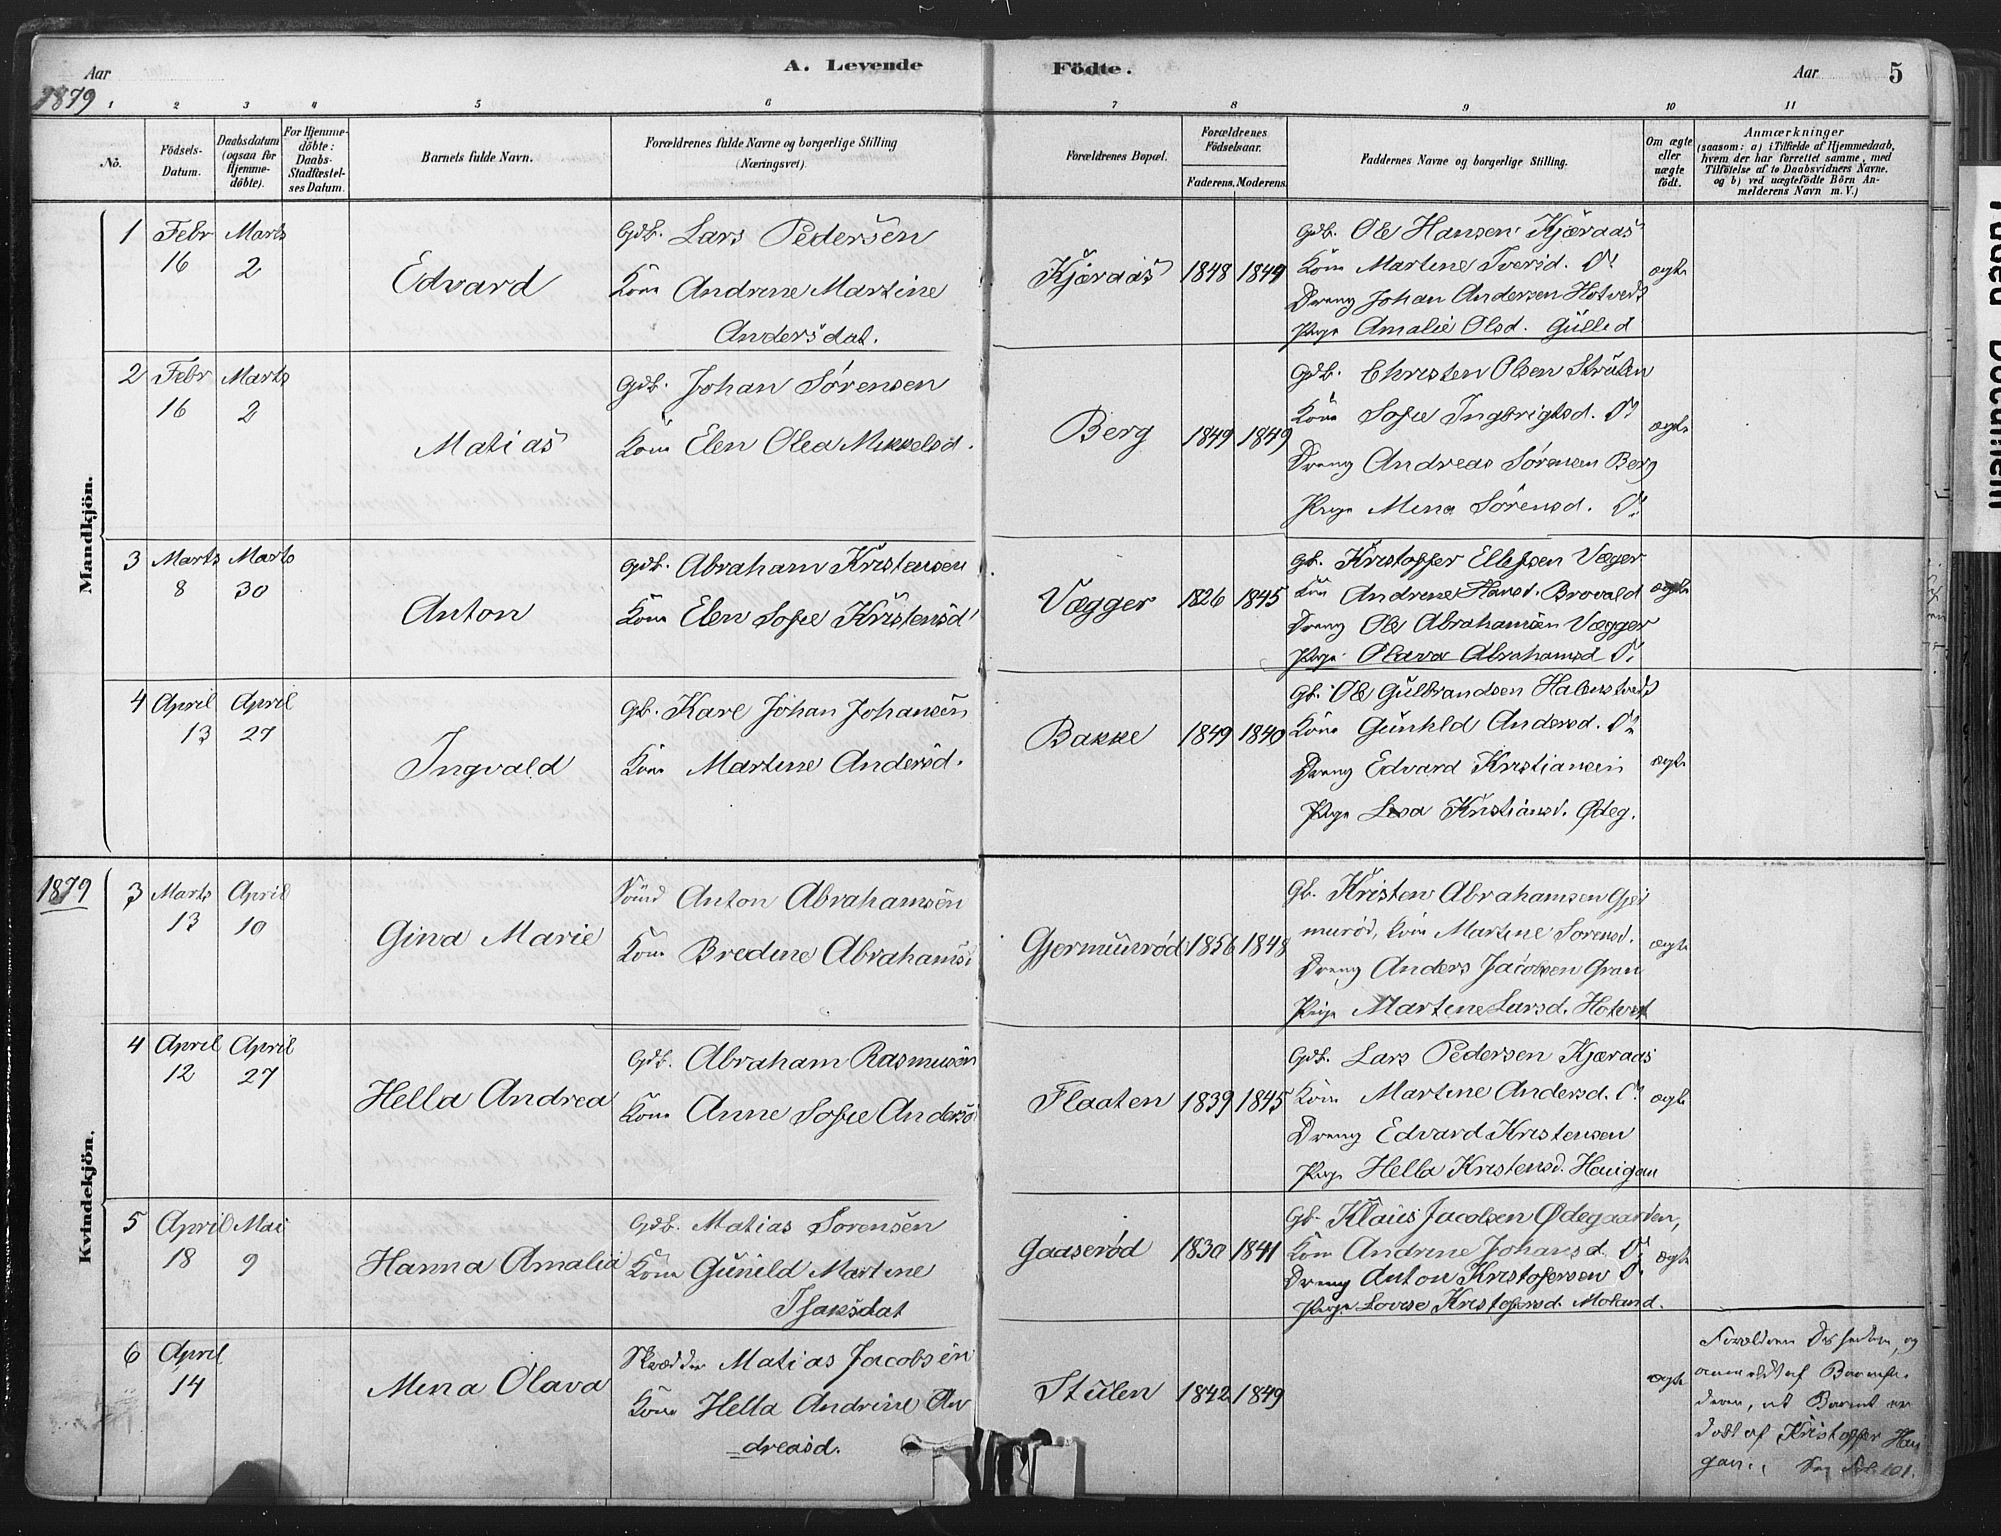 A. Levende Födte.
Aar 1879
Aar 5
1 2 3 4 5 6 7 8 9 10 11
No.
Födsels-Datum.
Daabsdatum (ogsaa for Hjemme-döbte).
For Hjemme-döbte: Daabs-Stadfæstel-ses Datum.
Barnets fulde Navn.
Forældrenes fulde Navne og borgerlige Stilling (Næringsvei).
Forældrenes Bopæl.
Forældrenes Födselsaar.
Faderens. Moderens.
Faddernes Navne og borgerlige Stilling.
Om ægte eller uægte födt.
Anmærkninger (saasom: a) i Tilfælde af Hjemmedaab, hvem der har forrettet samme, med Tilföielse af to Daabsvidners Navne. og b) ved uægtefödte Börn An-melderens Navn m. V.)
Mandkjön.
1 Febr 16 Marts 2
Edvard
Gdb. Lars Pedersen
Kone Andrine Martine
Andersdat.
Kjæraas 1848 1849
Gdb. Ole Hansen Kjæraas
Kone Martine Iversd. Do
Dreng Johan Andersen Hotvedt
Pige Amalie Olsd. Gulled
ægte
2 Febr 16 Marts 2
Matias
Gdb. Johan Sørensen
Kone Elen Olea Mikkelsd.
Berg 1849 1849
Gdb. Christen Olsen
Kone Sofie Ingbrigtsd. Do
Dreng Andreas Sørensen Berg
Pige Mina Sørensd. Do
ægte
3 Marts 8 Marts 30
Anton
Gdb. Abraham Kristensen
Kone Elen Sofie Kristensd
Vægger 1826 1845
Gb. Kristoffer Ellefsen Væger
Kone Andrine Hansd. Brovald
Dreng Ole Abrahamsen Vægger
Pige Olava Abrahamsd Do
ægte
4 April 13 April 27
Ingvald
Gb. Karl Johan Johansen
Kone Martine Andersd.
Bakke 1849 1840
Gb. Ole Gulbrandsen Halmstvedt
Kone Gunhld Andersd. Do
Dreng Edvard Kristiansen
Pige Lesa Kristiansd. Ødeg.
ægte
1879
Kvindekjön.
3 Marts 13 April 10
Gina Marie
Sømd Anton Abrahamsen
Kone Bredine Abrahamsd
Gjermundrød 1856 1848
Gb. Kristen Abrahamsen Gjer
murød, Kone Martine Sorensd.
Dreng Anders Jacobsen Gran
Pige Martine Larsd. Hotvet
ægte
4 April 12 April 27
Hella Andrea
Gdb. Abraham Rasmussen
Kone Anne Sofie Andersd
Flaaten 1839 1845
Gdb. Lars Pedersen Kjæraas
Kone Martine Andersd. Do
Dreng Edvard Kristensen
Pige Hella Kristensd. Haugan
ægte
5 April 18 Mai 9
Hanna Amalia
Gdb. Matias Sorensen
Kone Gunild Martine
Isaksdat
Gaaserød 1830 1841
Gb. Klaus Jacobsen Ødegaarden,
Kone Andrine Johansd. Do
Dreng Anton Kristofersen Do
Pige Lovise Kristofersd. Moland.
ægte
6 April 14
Mina Olava
Skrædder Matias Jacobsen
Kone Hella Andrine An
dreasd.
Stulen 1842 1849
ægte
Forældrene Dissentere, og
anmeldt af Barnefa-
deren, at Barnet er
døbt af Kristoffer Hau
gan. Fol. 101.